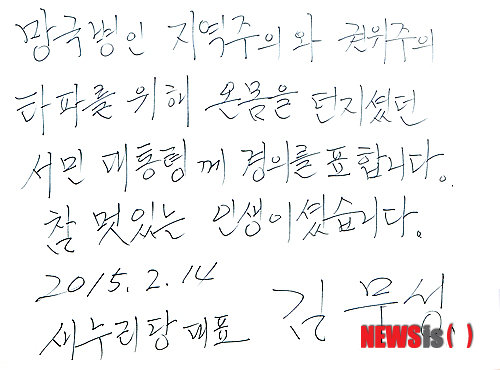 망국병인 지역주의와 권위주의
타파를 위해 온몸을 던지셨던
서민 대통령께 경의를 표합니다.
참 멋있는 인생이셨습니다.
2015. 2. 14
새누리당 대표 김무성
NEWSis( )